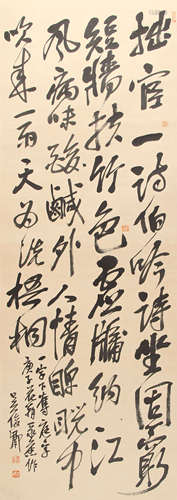 拙宦一詩伯吟詩坐固窮
短牆扶竹色虛牖納江
風病味酸鹹外人情睥睨中
來一雨天為洗梧桐
一字下奪庭字
庚子 作
吳俊卿